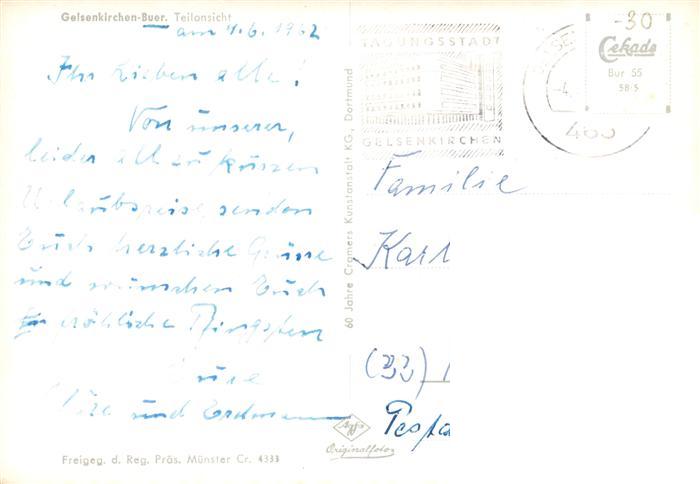 Gelsenkirchen-Buer. Teilansicht
am 4.6.1962
Ihr Lieben alle!
Von unserer,
leider all zu kurzen
Urlaubsreise, senden
Euch herzliche Grüsse
und wünschen Euch
fröhliche Pfingsten
Eure
und Erdmann
Freigeg. d. Reg. Präs. Münster Cr. 4333
60 Jahre Cramers Kunstanstalt KG., Dortmund
Agfa
Originalfoto
TAGUNGSSTADT
GELSENKIRCHEN
-30
Cekade
Bur 55
58·5
Familie
Karl
(22)
Pesta